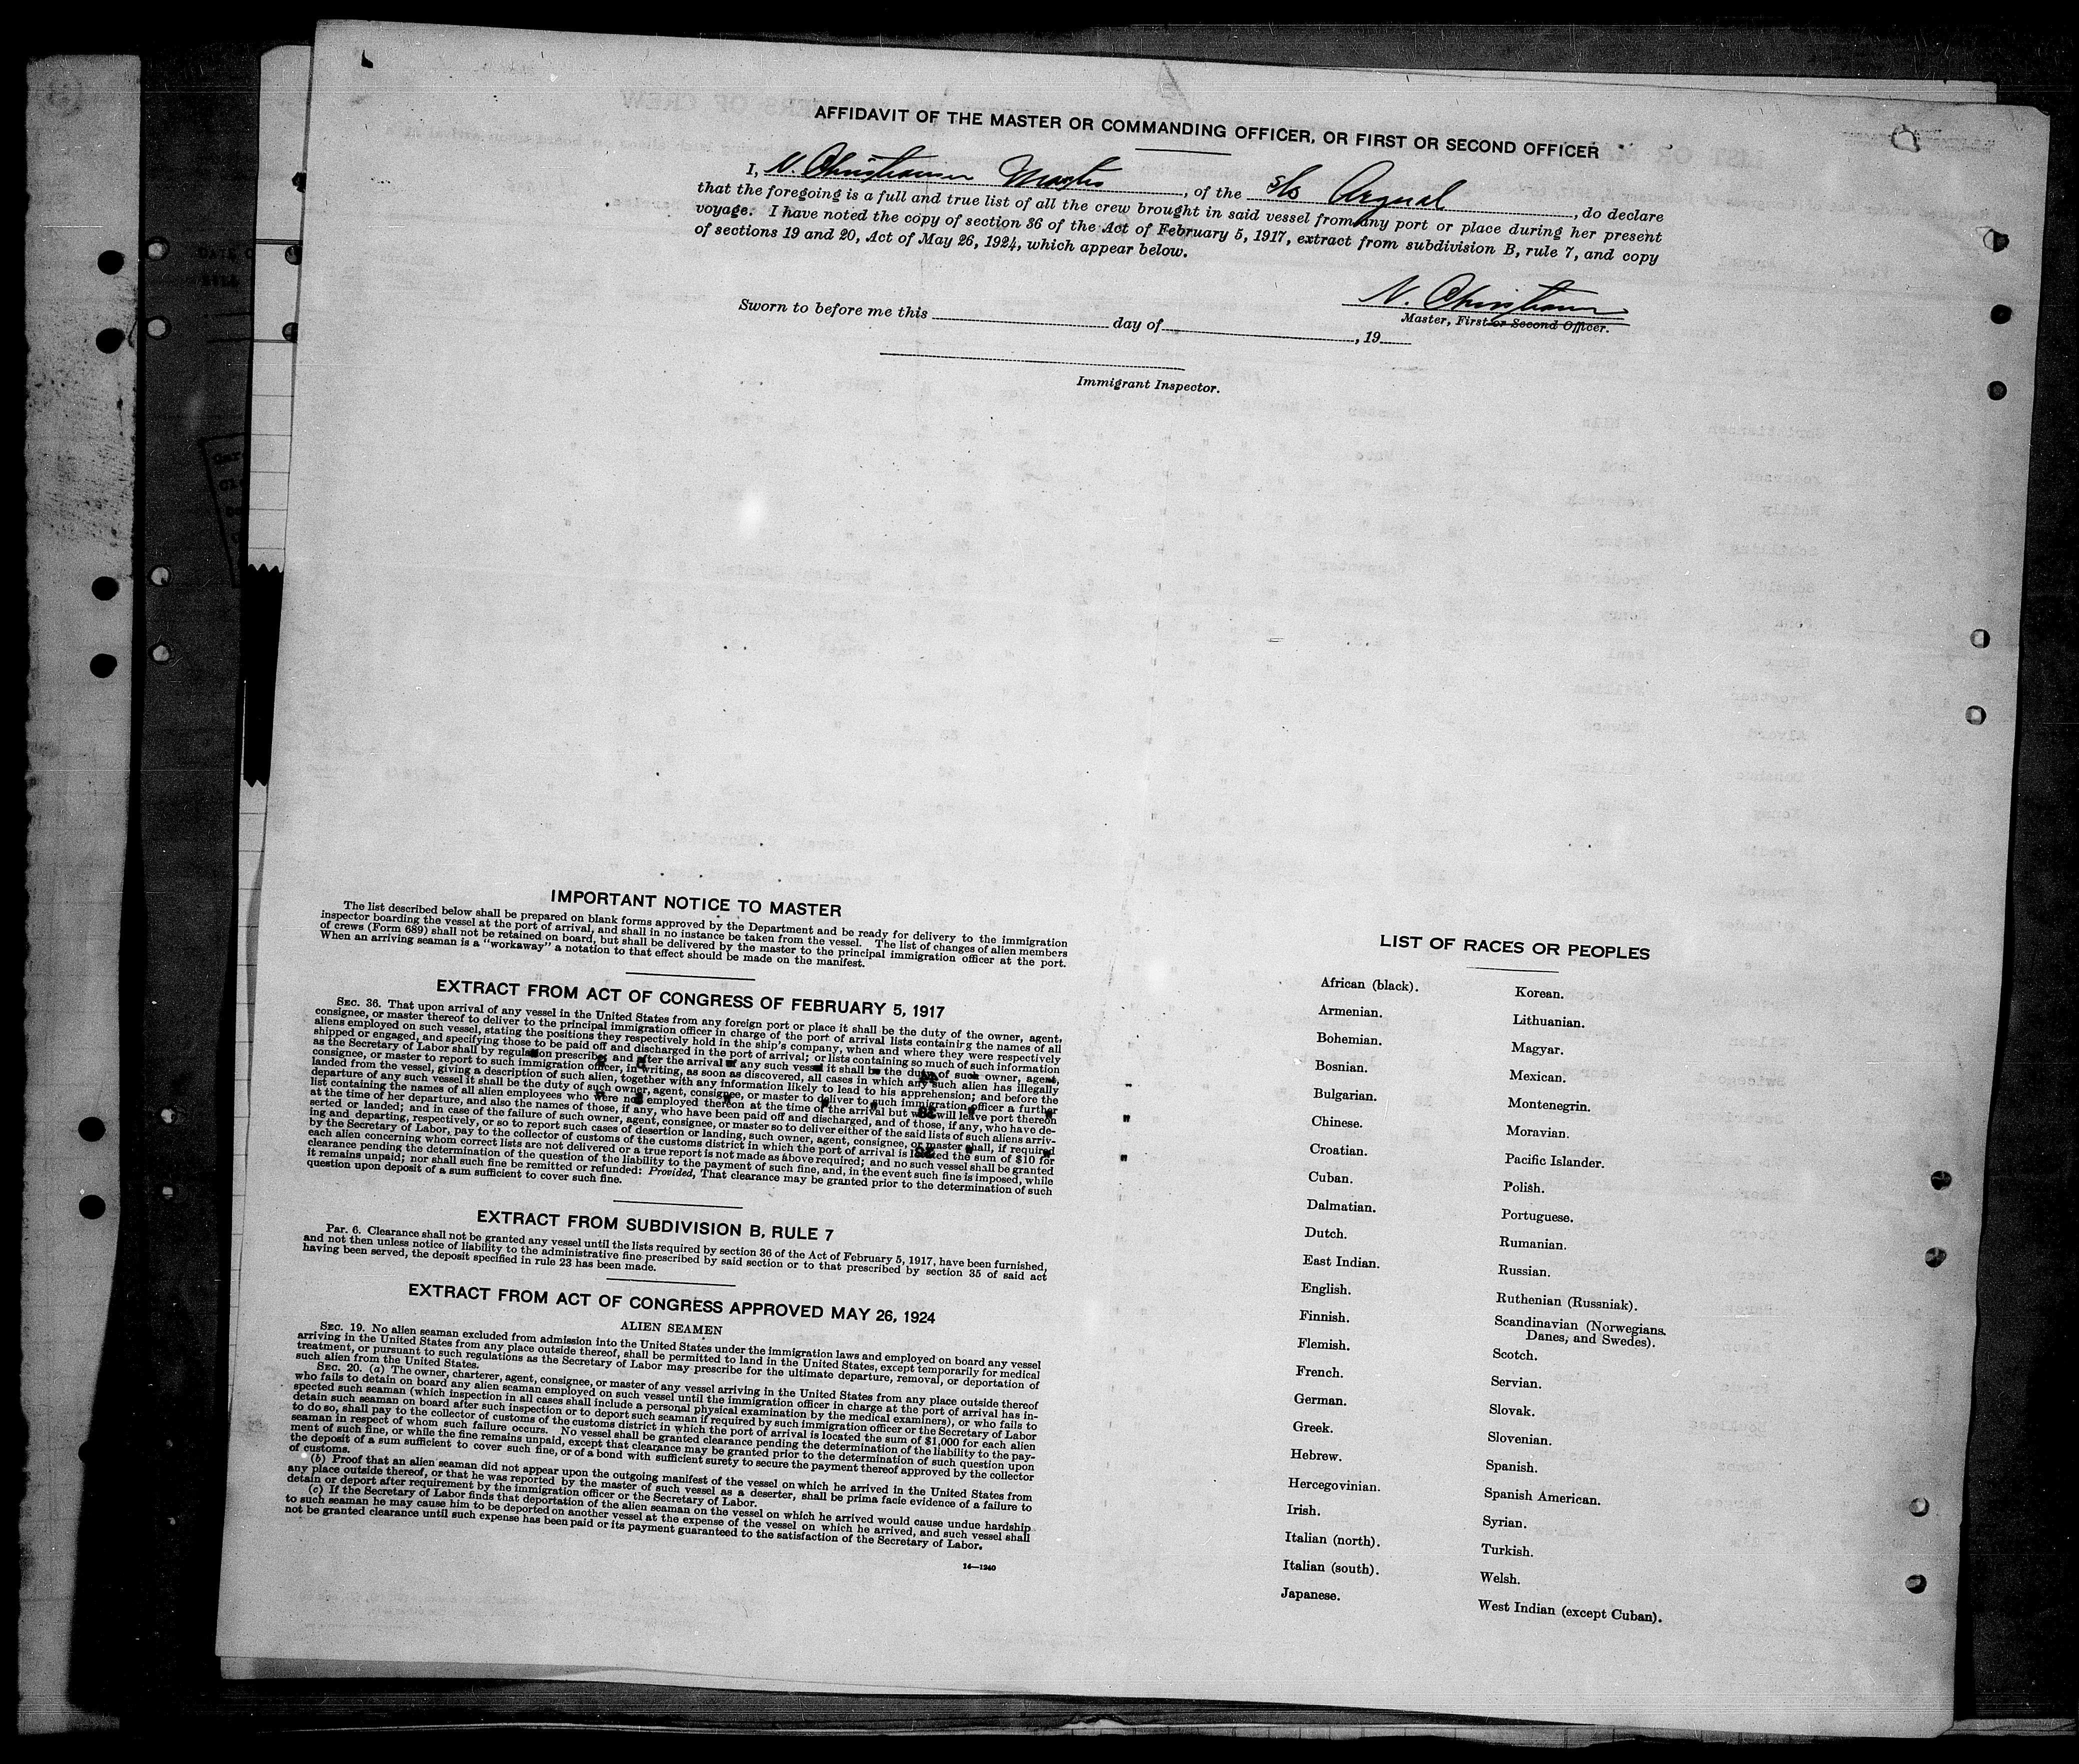 AFFIDAVIT OF THE MASTER OR COMMANDING OFFICER, OR FIRST OR SECOND OFFICER
I, N. Christiansen Master, of the s/s Argual, do declare
that the foregoing is a full and true list of all the crew brought in said vessel from any port or place during her present
voyage. I have noted the copy of section 36 of the Act of February 5, 1917, extract from subdivision B, rule 7, and copy
of sections 19 and 20, Act of May 26, 1924, which appear below.
N. Christiansen
Master, First or Second Officer.
Sworn to before me this day of , 19
Immigrant Inspector.
IMPORTANT NOTICE TO MASTER
The list described below shall be prepared on blank forms approved by the Department and be ready for delivery to the immigration
inspector boarding the vessel at the port of arrival, and shall in no instance be taken from the vessel. The list of changes of alien members
of crews (Form 689) shall not be retained on board, but shall be delivered by the master to the principal immigration officer at the port.
When an arriving seaman is a "workaway" a notation to that effect should be made on the manifest.
EXTRACT FROM ACT OF CONGRESS OF FEBRUARY 5, 1917
SEC. 36. That upon arrival of any vessel in the United States from any foreign port or place it shall be the duty of the owner, agent,
consignee, or master thereof to deliver to the principal immigration officer in charge of the port of arrival lists containing the names of all
aliens employed on such vessel, stating the positions they respectively hold in the ship's company, when and where they were respectively
shipped or engaged, and specifying those to be paid off and discharged in the port of arrival; or lists containing so much of such information
as the Secretary of Labor shall by regulation prescribe; and after the arrival of any such vessel it shall be the duty of such owner, agent,
consignee, or master to report to such immigration officer, in writing, as soon as discovered, all cases in which any such alien has illegally
landed from the vessel, giving a description of such alien, together with any information likely to lead to his apprehension; and before the
departure of any such vessel it shall be the duty of such owner, agent, consignee, or master to deliver to such immigration officer a further
list containing the names of all alien employees who were not employed thereon at the time of the arrival but who will leave port thereon
at the time of her departure, and also the names of those, if any, who have been paid off and discharged, and of those, if any, who have de-
serted or landed; and in case of the failure of such owner, agent, consignee, or master so to deliver either of the said lists of such aliens arriv-
ing and departing, respectively, or so to report such cases of desertion or landing, such owner, agent, consignee, or master shall, if required
by the Secretary of Labor, pay to the collector of customs of the customs district in which the port of arrival is located the sum of $10 for
each alien concerning whom correct lists are not delivered or a true report is not made as above required; and no such vessel shall be granted
clearance pending the determination of the question of the liability to the payment of such fine, and, in the event such fine is imposed, while
it remains unpaid; nor shall such fine be remitted or refunded: Provided, That clearance may be granted prior to the determination of such
question upon deposit of a sum sufficient to cover such fine.
EXTRACT FROM SUBDIVISION B, RULE 7
Par. 6. Clearance shall not be granted any vessel until the lists required by section 36 of the Act of February 5, 1917, have been furnished,
and not then unless notice of liability to the administrative fine prescribed by said section or to that prescribed by section 35 of said act
having been served, the deposit specified in rule 23 has been made.
EXTRACT FROM ACT OF CONGRESS APPROVED MAY 26, 1924
ALIEN SEAMEN
SEC. 19. No alien seaman excluded from admission into the United States under the immigration laws and employed on board any vessel
arriving in the United States from any place outside thereof, shall be permitted to land in the United States, except temporarily for medical
treatment, or pursuant to such regulations as the Secretary of Labor may prescribe for the ultimate departure, removal, or deportation of
such alien from the United States.
SEC. 20. (a) The owner, charterer, agent, consignee, or master of any vessel arriving in the United States from any place outside thereof
who fails to detain on board any alien seaman employed on such vessel until the immigration officer in charge at the port of arrival has in-
spected such seaman (which inspection in all cases shall include a personal physical examination by the medical examiners), or who fails to
detain such seaman on board after such inspection or to deport such seaman if required by such immigration officer or the Secretary of Labor
to do so, shall pay to the collector of customs of the customs district in which the port of arrival is located the sum of $1,000 for each alien
seaman in respect of whom such failure occurs. No vessel shall be granted clearance pending the determination of the liability to the pay-
ment of such fine, or while the fine remains unpaid, except that clearance may be granted prior to the determination of such question upon
the deposit of a sum sufficient to cover such fine, or of a bond with sufficient surety to secure the payment thereof approved by the collector
of customs.
(b) Proof that an alien seaman did not appear upon the outgoing manifest of the vessel on which he arrived in the United States from
any place outside thereof, or that he was reported by the master of such vessel as a deserter, shall be prima facie evidence of a failure to
detain or deport after requirement by the immigration officer or the Secretary of Labor.
(c) If the Secretary of Labor finds that deportation of the alien seaman on the vessel on which he arrived would cause undue hardship
to such seaman he may cause him to be deported on another vessel at the expense of the vessel on which he arrived, and such vessel shall
not be granted clearance until such expense has been paid or its payment guaranteed to the satisfaction of the Secretary of Labor.
14—1240
LIST OF RACES OR PEOPLES
African (black).
Armenian.
Bohemian.
Bosnian.
Bulgarian.
Chinese.
Croatian.
Cuban.
Dalmatian.
Dutch.
East Indian.
English.
Finnish.
Flemish.
French.
German.
Greek.
Hebrew.
Hercegovinian.
Irish.
Italian (north).
Italian (south).
Japanese.
Korean.
Lithuanian.
Magyar.
Mexican.
Montenegrin.
Moravian.
Pacific Islander.
Polish.
Portuguese.
Rumanian.
Russian.
Ruthenian (Russniak).
Scandinavian (Norwegians,
Danes, and Swedes).
Scotch.
Servian.
Slovak.
Slovenian.
Spanish.
Spanish American.
Syrian.
Turkish.
Welsh.
West Indian (except Cuban).